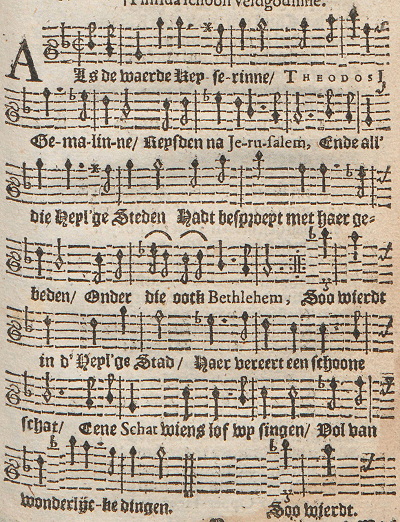 Als de waerde Keyserinne/ THEODOSI
Ge-ma-lin-ne/ Keysden na Je-ru-salem, Ende all'
die Heyl'ge Steden Hadt besproeyt met haer ge-
beden/ Onder die oock Bethlehem, Soo wierdt
in d'Heyl'ge Stad/ Haer vereert een schoone
schat/ Eene Schat wiens lof wy singen/ Vol van
wonderlijc-ke dingen. Soo wierdt.